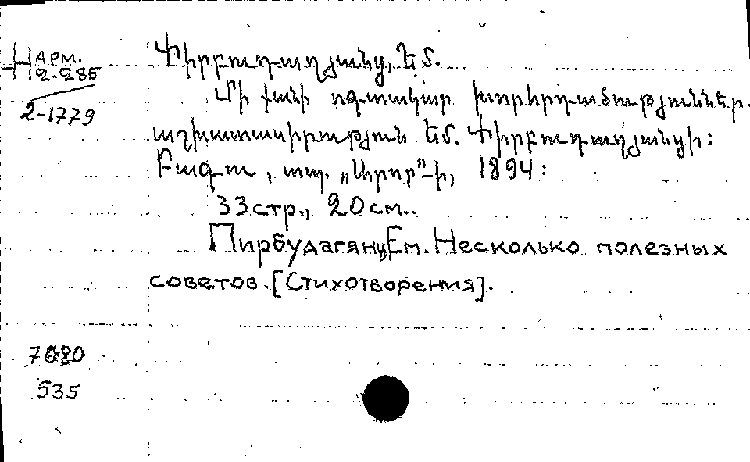 Н АРМ.
2-285
2-1779
Փիրբուդաղյանց, Եմ.
Մի քանի օգտակար խորհրդածութիւններ.
աշխատասիրութիւն Եմ. Փիրբուդաղյանցի:
Բագու, տպ. „Արոր"-ի, 1894:
33 стр., 20 см.
Пирбудагянц, Ем. Несколько полезных
советов. [Стихотворения].
535